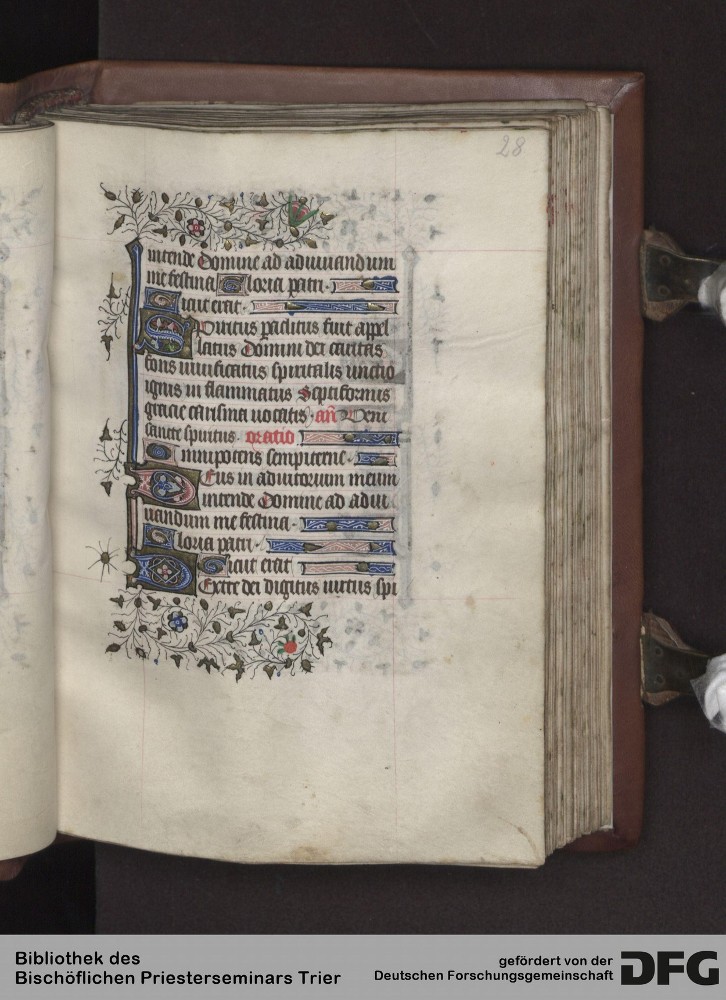 28
intende Domine ad adiuuandum
me festina Gloria patri.
Sicut erat.
Spiritus paclitus fuit appel
latus Domini dei caritas
fons uiuificatus spiritalis unctio
ignis in flammatus Septiformis
gracie carisma uocatis. añ Veni
sancte spiritus. oratio
Omnipotens sempiterne.
Deus in adiutorium meum
intende Domine ad adiu
uandum me festina.
Gloria patri.
Sicut erat
Dextre dei digitus uirtus spi
Bibliothek des
Bischöflichen Priesterseminars Trier
gefördert von der
Deutschen Forschungsgemeinschaft
DFG